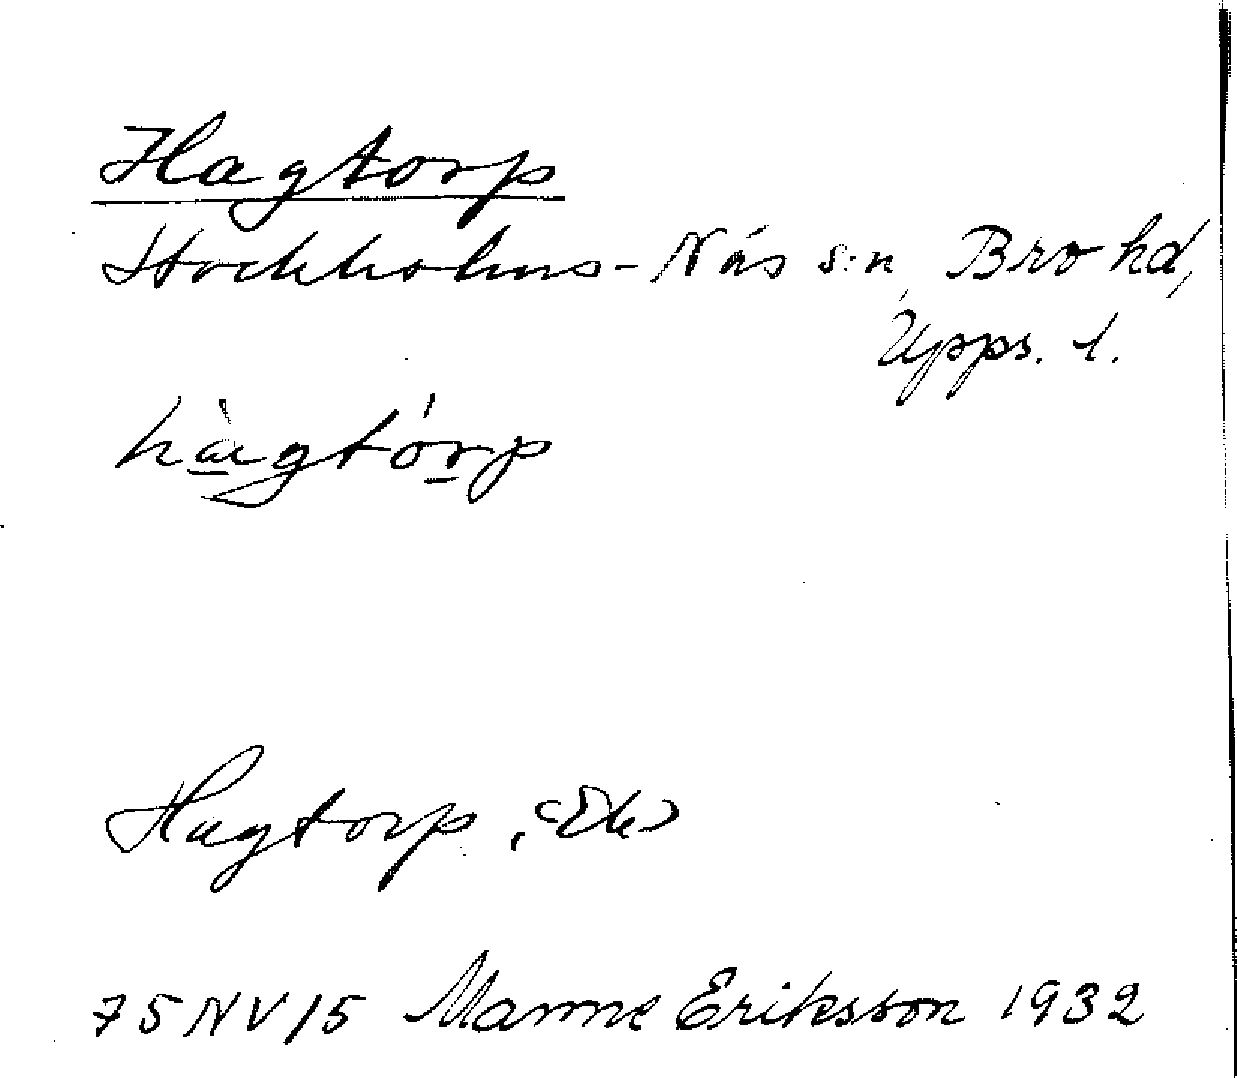 Hagtorp
Stockholms-Näs s:n, Bro hd,
Upps. l.
hàgtórp
Hagtorp, (Ek)
75NV15 Manne Eriksson 1932